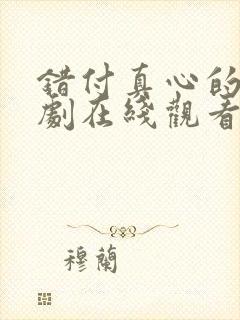 错付真心的
劇在綫觀看
穆蘭